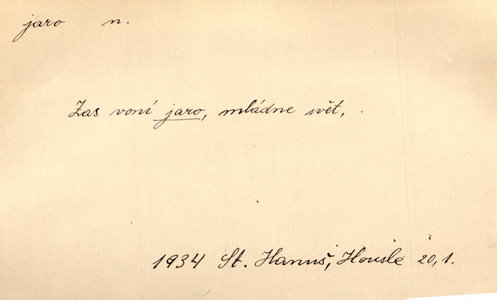 jaro n.
Zas voní jaro, mládne svět,
1934 St. Hanuš, Housle 20,1.